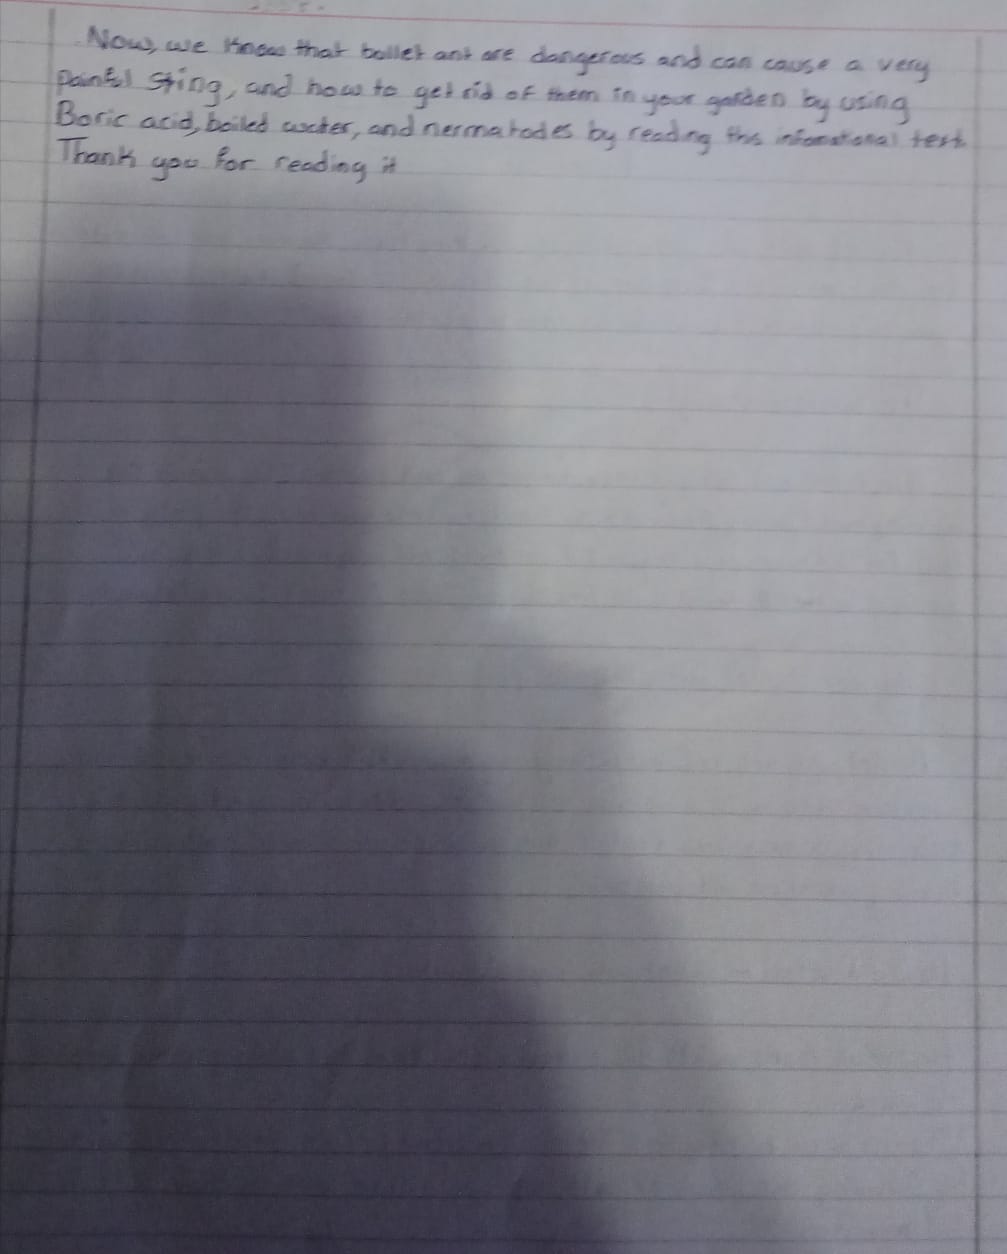 Now, we know that bullet ant are dangerous and can cause a very
painful sting, and how to get rid of them in your garden by using
Boric acid, boiled water, and nermatodes by reading this informational text
Thank you for reading it